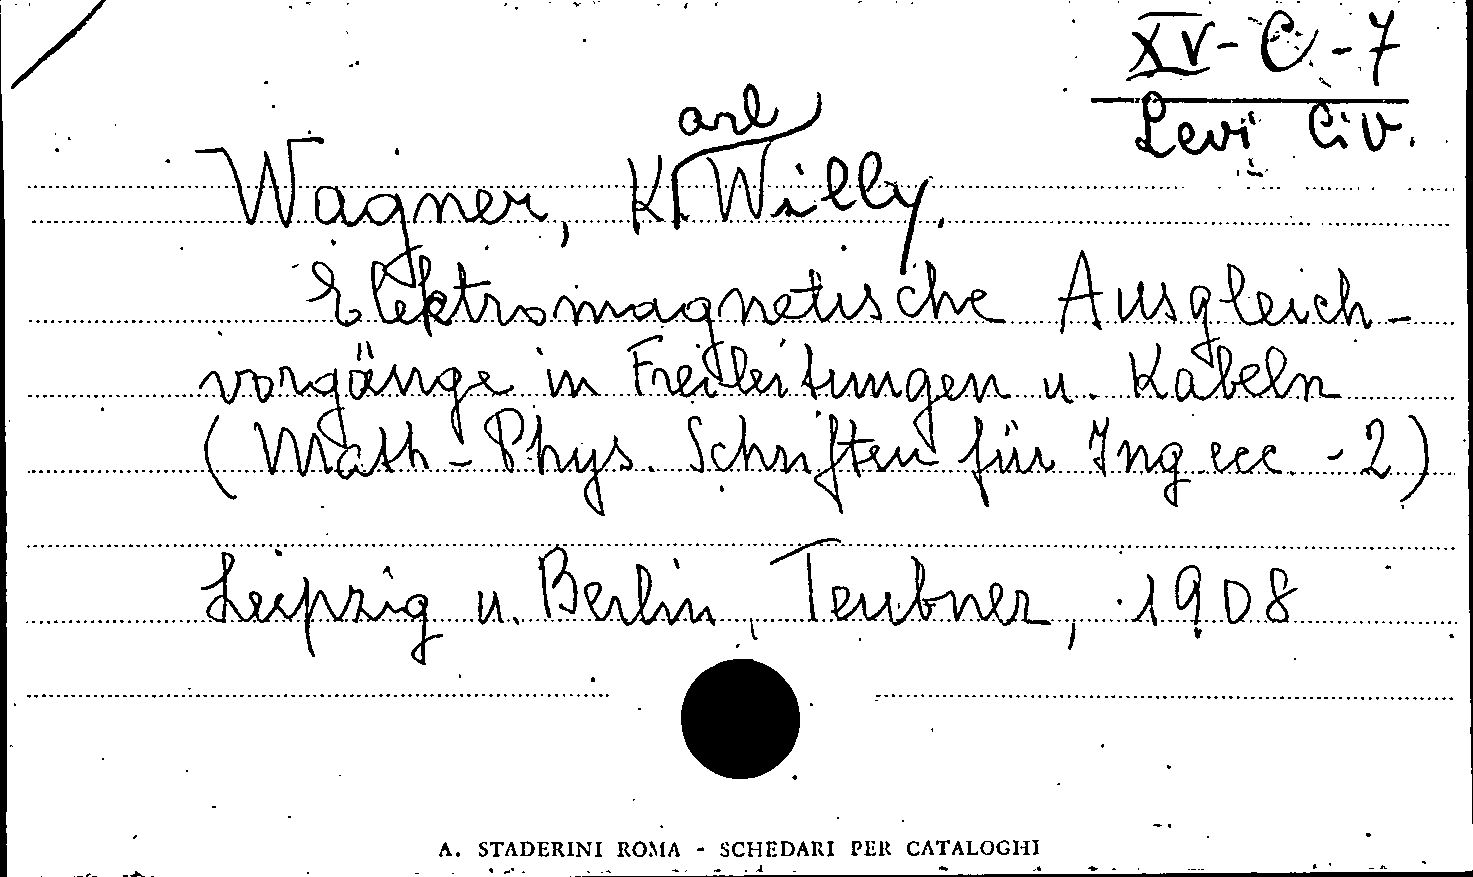 XV-C-7
Levi Civ.
Wagner, Karl Willy.
Elektromagnetische Ausgleich-
vorgänge in Freileitungen u. Kabeln
(Math-Phys. Schriften für Ing ecc. - 2)
Leipzig u. Berlin, Teubner, 1908
A. STADERINI ROMA - SCHEDARI PER CATALOGHI